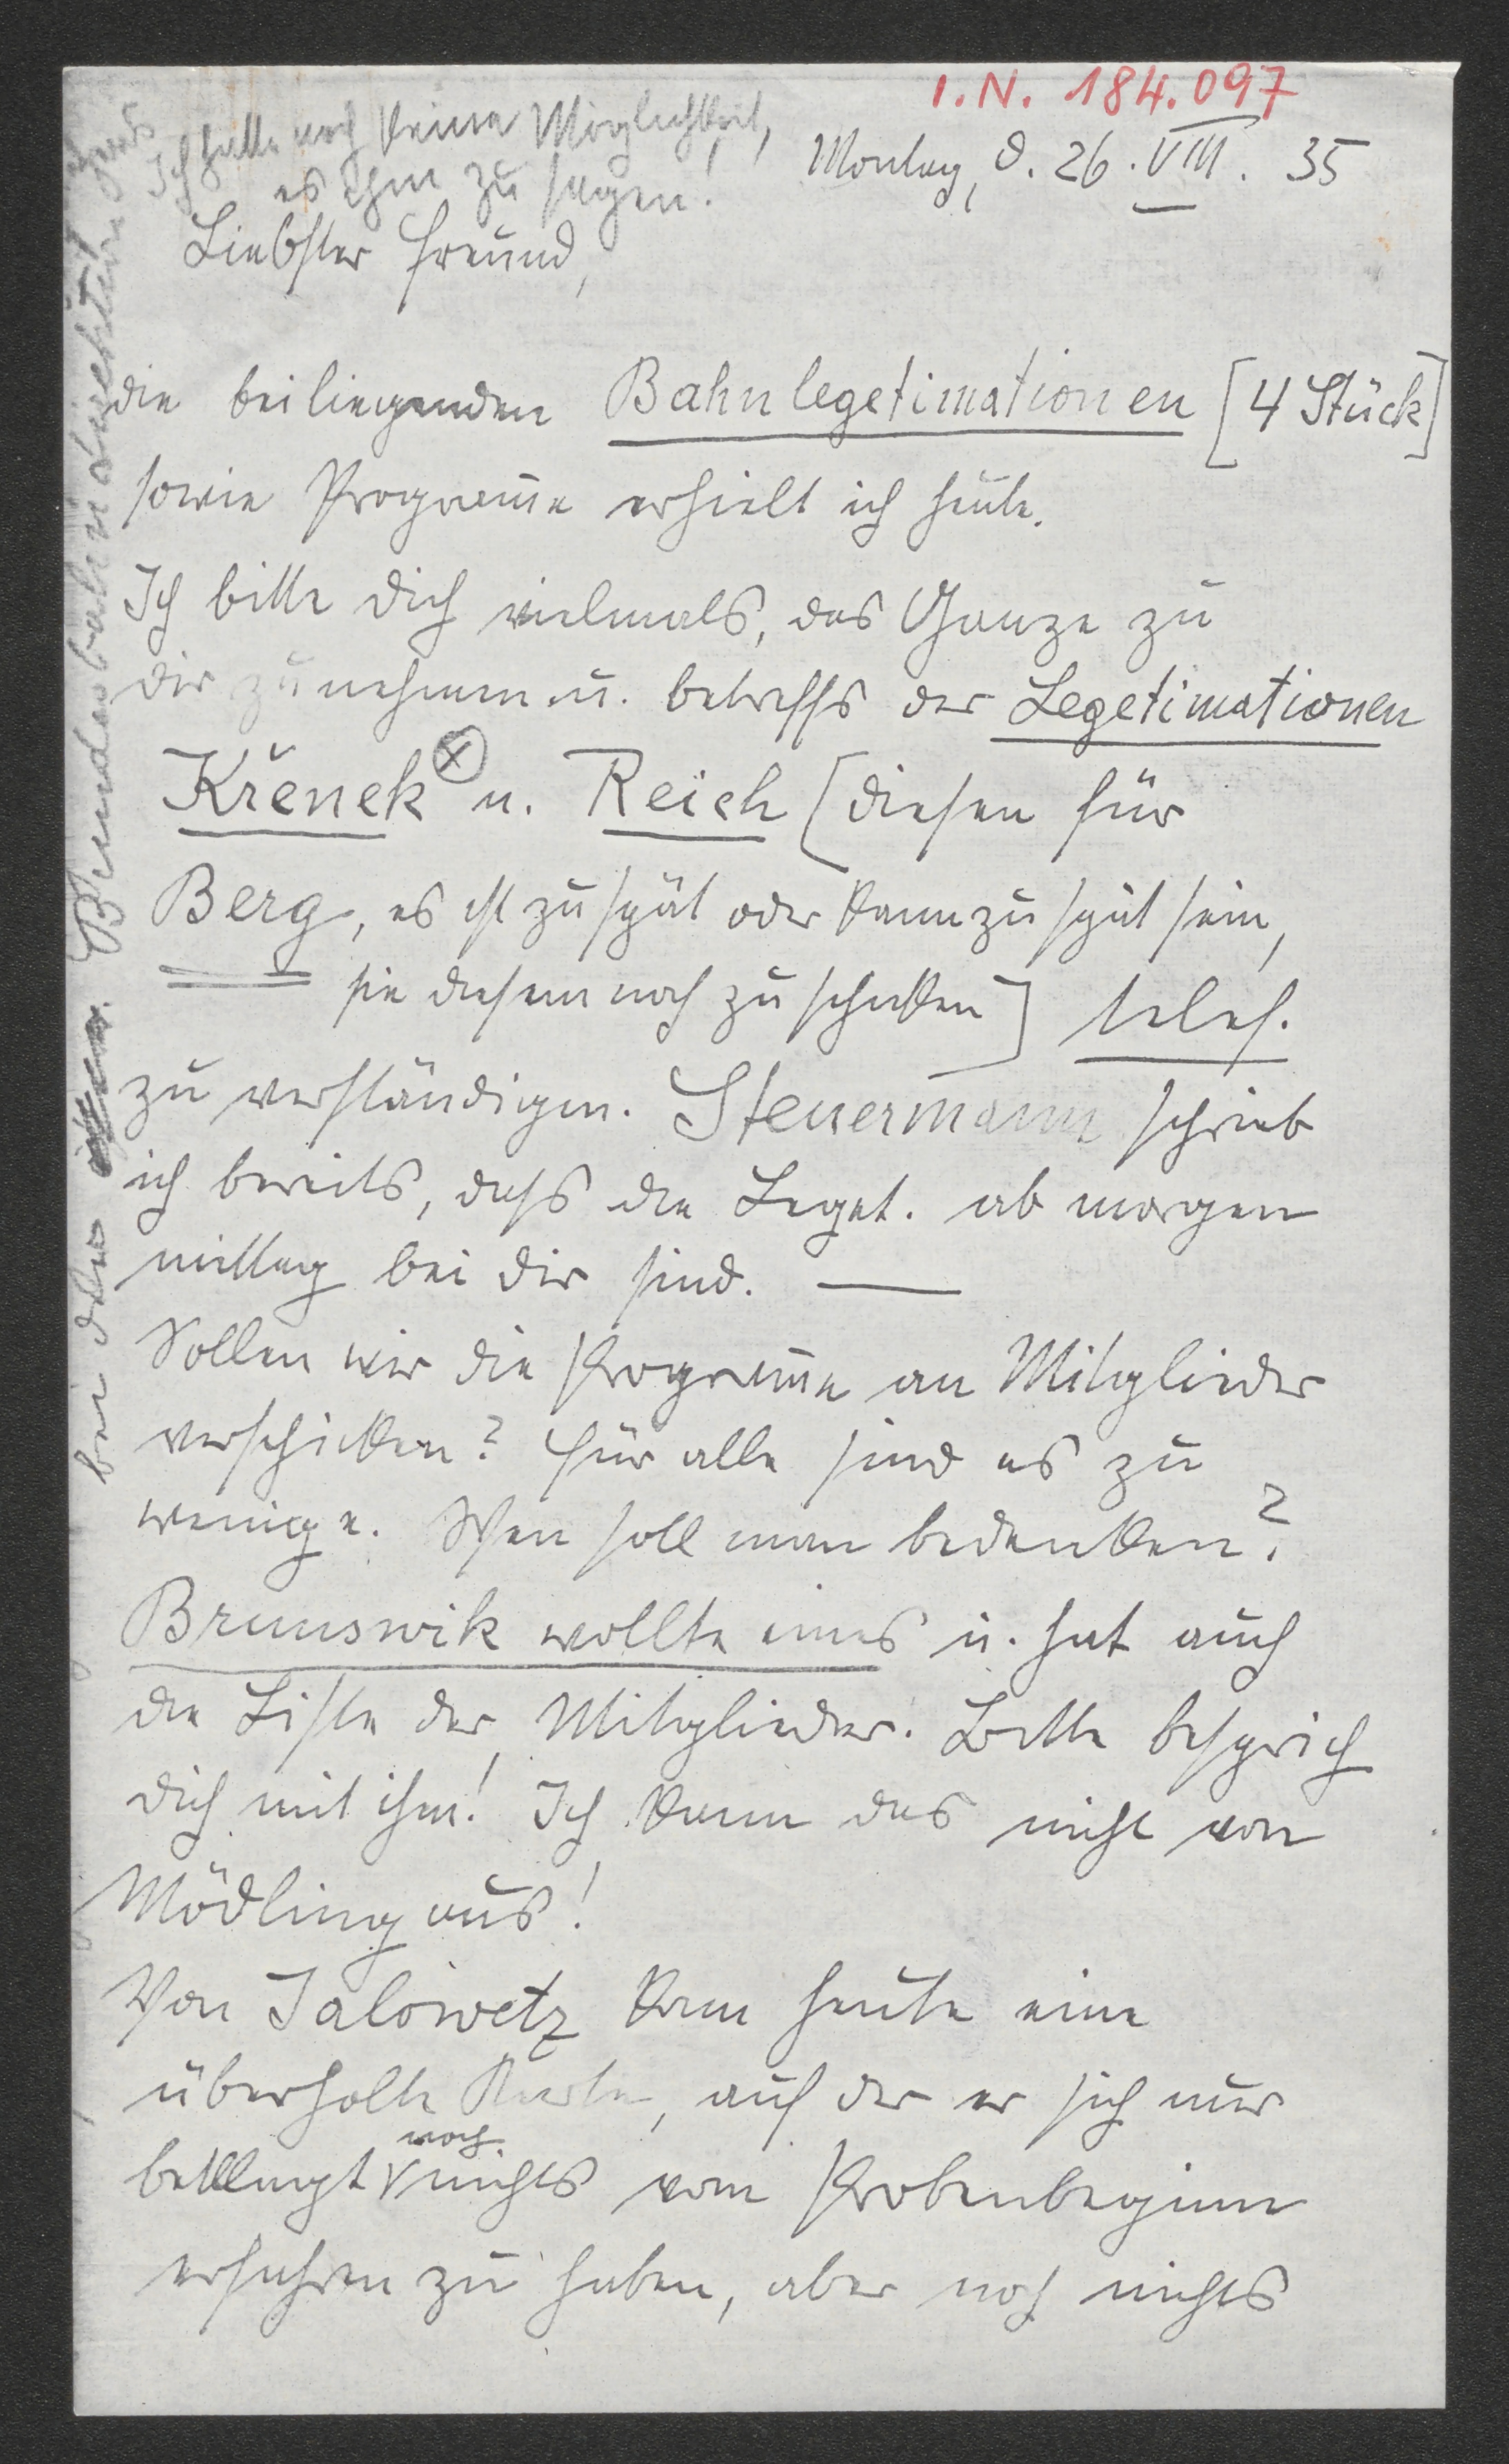 I.N. 184.097
Montag, d. 26. VIII. 35
Ich hatte noch keine Möglichkeit,
es ihm zu sagen!
Liebster Freund,
die beiliegenden Bahnlegetimationen [4 Stück]
sowie Programme erhielt ich heute.
Ich bitte dich vielmals, das Ganze zu
dir zu nehmen u. betreffs der Legetimationen
Křenek ⓧ u. Reich [diesen für
Berg, es ist zu spät oder kann zu spät sein,
sie diesem noch zu schicken] telef.
zu verständigen. Steuermann schrieb
ich bereits, dass die Leget. ab morgen
mittag bei dir sind. —
Sollen wir die Programme an Mitglieder
verschicken? Für alle sind es zu
wenige. Wen soll man bedenken?
Brunswik wollte eines u. hat auch
die Liste der Mitglieder. Bitte besprich
dich mit ihm! Ich kann das nicht von
Mödling aus!
Von Jalowetz kam heute eine
überholte Karte, auf der er sich nur
beklagt noch nichts vom Probenbeginn
erfahren zu haben, aber noch nichts
bei der Bundesbahndirektion